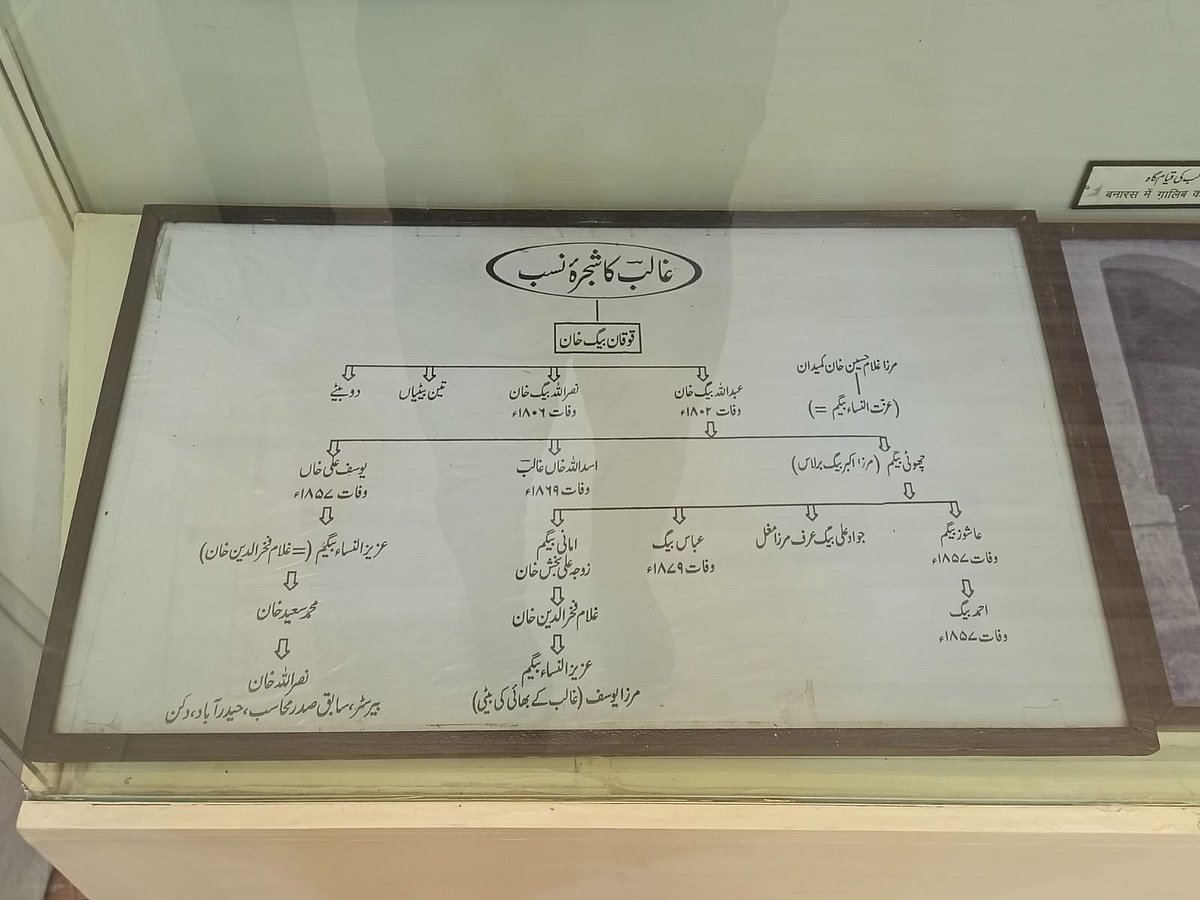 غالبؔ کا شجرۂ نسب
قوقان بیگ خان
مرزا غلام حسین خان کمیدان
(عزت النساء بیگم =)
عبداللہ بیگ خان
وفات ۱۸۰۲ء
نصراللہ بیگ خان
وفات ۱۸۰۶ء
تین بیٹیاں
دو بیٹے
چھوٹی بیگم (مرزا اکبر بیگ برلاس)
اسداللہ خاں غالبؔ
وفات ۱۸۶۹ء
یوسف علی خاں
وفات ۱۸۵۷ء
عاشور بیگم
وفات ۱۸۵۷ء
جواد علی بیگ عرف مرزا مغل
عباس بیگ
وفات ۱۸۷۹ء
امانی بیگم
زوجہ علی بخش خان
عزیز النساء بیگم (= غلام فخرالدین خان)
احمد بیگ
وفات ۱۸۵۷ء
غلام فخرالدین خان
محمد سعید خان
عزیز النساء بیگم
مرزا یوسف (غالب کے بھائی کی بیٹی)
نصراللہ خان
بیرسٹر، سابق صدر محاسب، حیدرآباد، دکن
کی قیام گاہ
बनारस में ग़ालिब